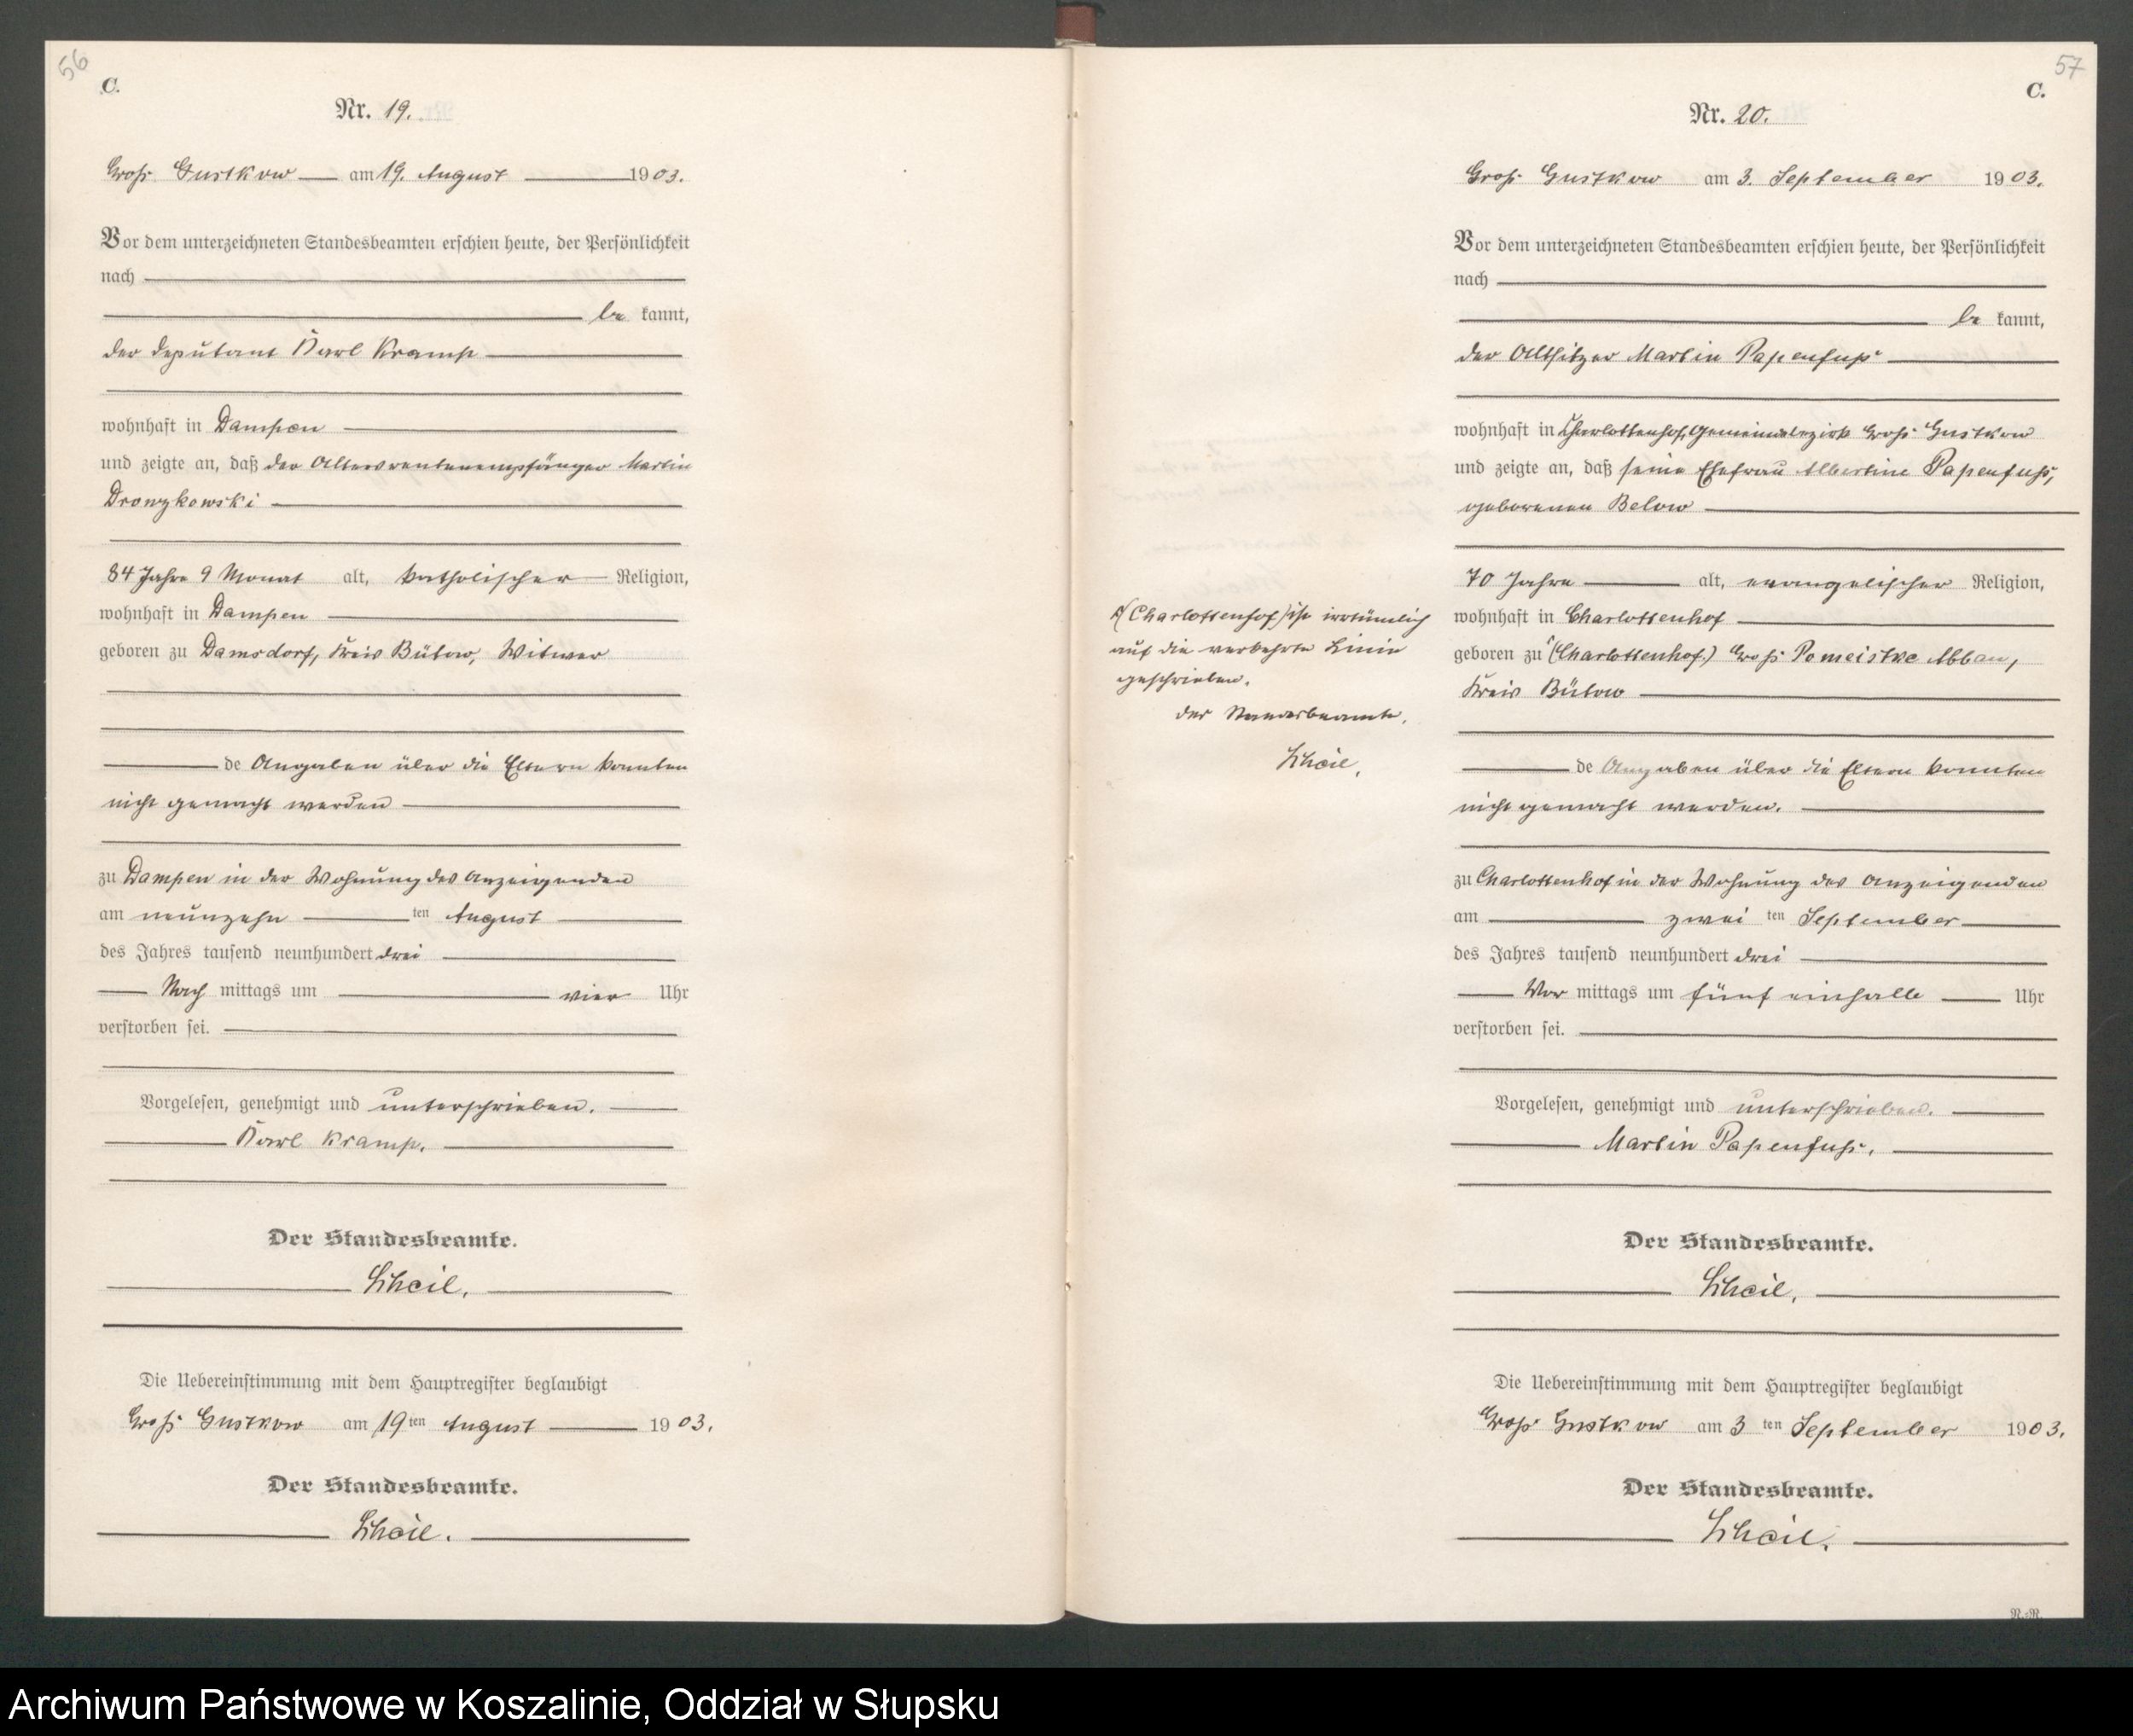 56
C.
Nr. 19.
Groß Gustkow am 19. August 1903.
Vor dem unterzeichneten Standesbeamten erschien heute, der Persönlichkeit
nach
be kannt,
der Deputant Karl Kramp
wohnhaft in Dampen
und zeigte an, daß der Altersrentenempfänger Martin
Dronzkowski
84 Jahre 9 Monat alt, katholischer Religion,
wohnhaft in Dampen
geboren zu Damsdorf, Kreis Bütow, Witwer
de Angaben über die Eltern konnten
nicht gemacht werden
zu Dampen in der Wohnung des Anzeigenden
am neunzehn ten August
des Jahres tausend neunhundert drei
Nach mittags um vier Uhr
verstorben sei.
Vorgelesen, genehmigt und unterschrieben.
Karl Kramp.
Der Standesbeamte.
Scheil.
Die Uebereinstimmung mit dem Hauptregister beglaubigt
Groß Gustkow am 19ten August 1903.
Der Standesbeamte.
Scheil.
57
C.
Nr. 20.
Groß Gustkow am 3. September 1903.
Vor dem unterzeichneten Standesbeamten erschien heute, der Persönlichkeit
nach
be kannt,
der Altsitzer Martin Papenfuß
wohnhaft in Charlottenhof, Gemeindebezirk Groß Gustkow
und zeigte an, daß seine Ehefrau Albertine Papenfuß,
geborenen Below
70 Jahre alt, evangelischer Religion,
wohnhaft in Charlottenhof
geboren zu (Charlottenhof.) Groß Pomeiske Abbau,
Kreis Bütow
(Charlottenhof) ist irrtümlich
auf die verkehrte Linie
geschrieben.
Der Standesbeamte.
Scheil.
de Angaben über die Eltern konnten
nicht gemacht werden.
zu Charlottenhof in der Wohnung des Anzeigenden
am zwei ten September
des Jahres tausend neunhundert drei
Vor mittags um fünf einhalb Uhr
verstorben sei.
Vorgelesen, genehmigt und unterschrieben.
Martin Papenfuß.
Der Standesbeamte.
Scheil.
Die Uebereinstimmung mit dem Hauptregister beglaubigt
Groß Gustkow am 3 ten September 1903.
Der Standesbeamte.
Scheil.
Archiwum Państwowe w Koszalinie, Oddział w Słupsku